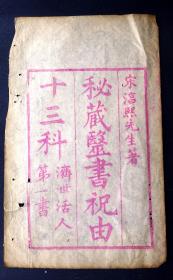 宋淳熙先生著
秘藏醫書祝由
十三科
濟世活人
第一書